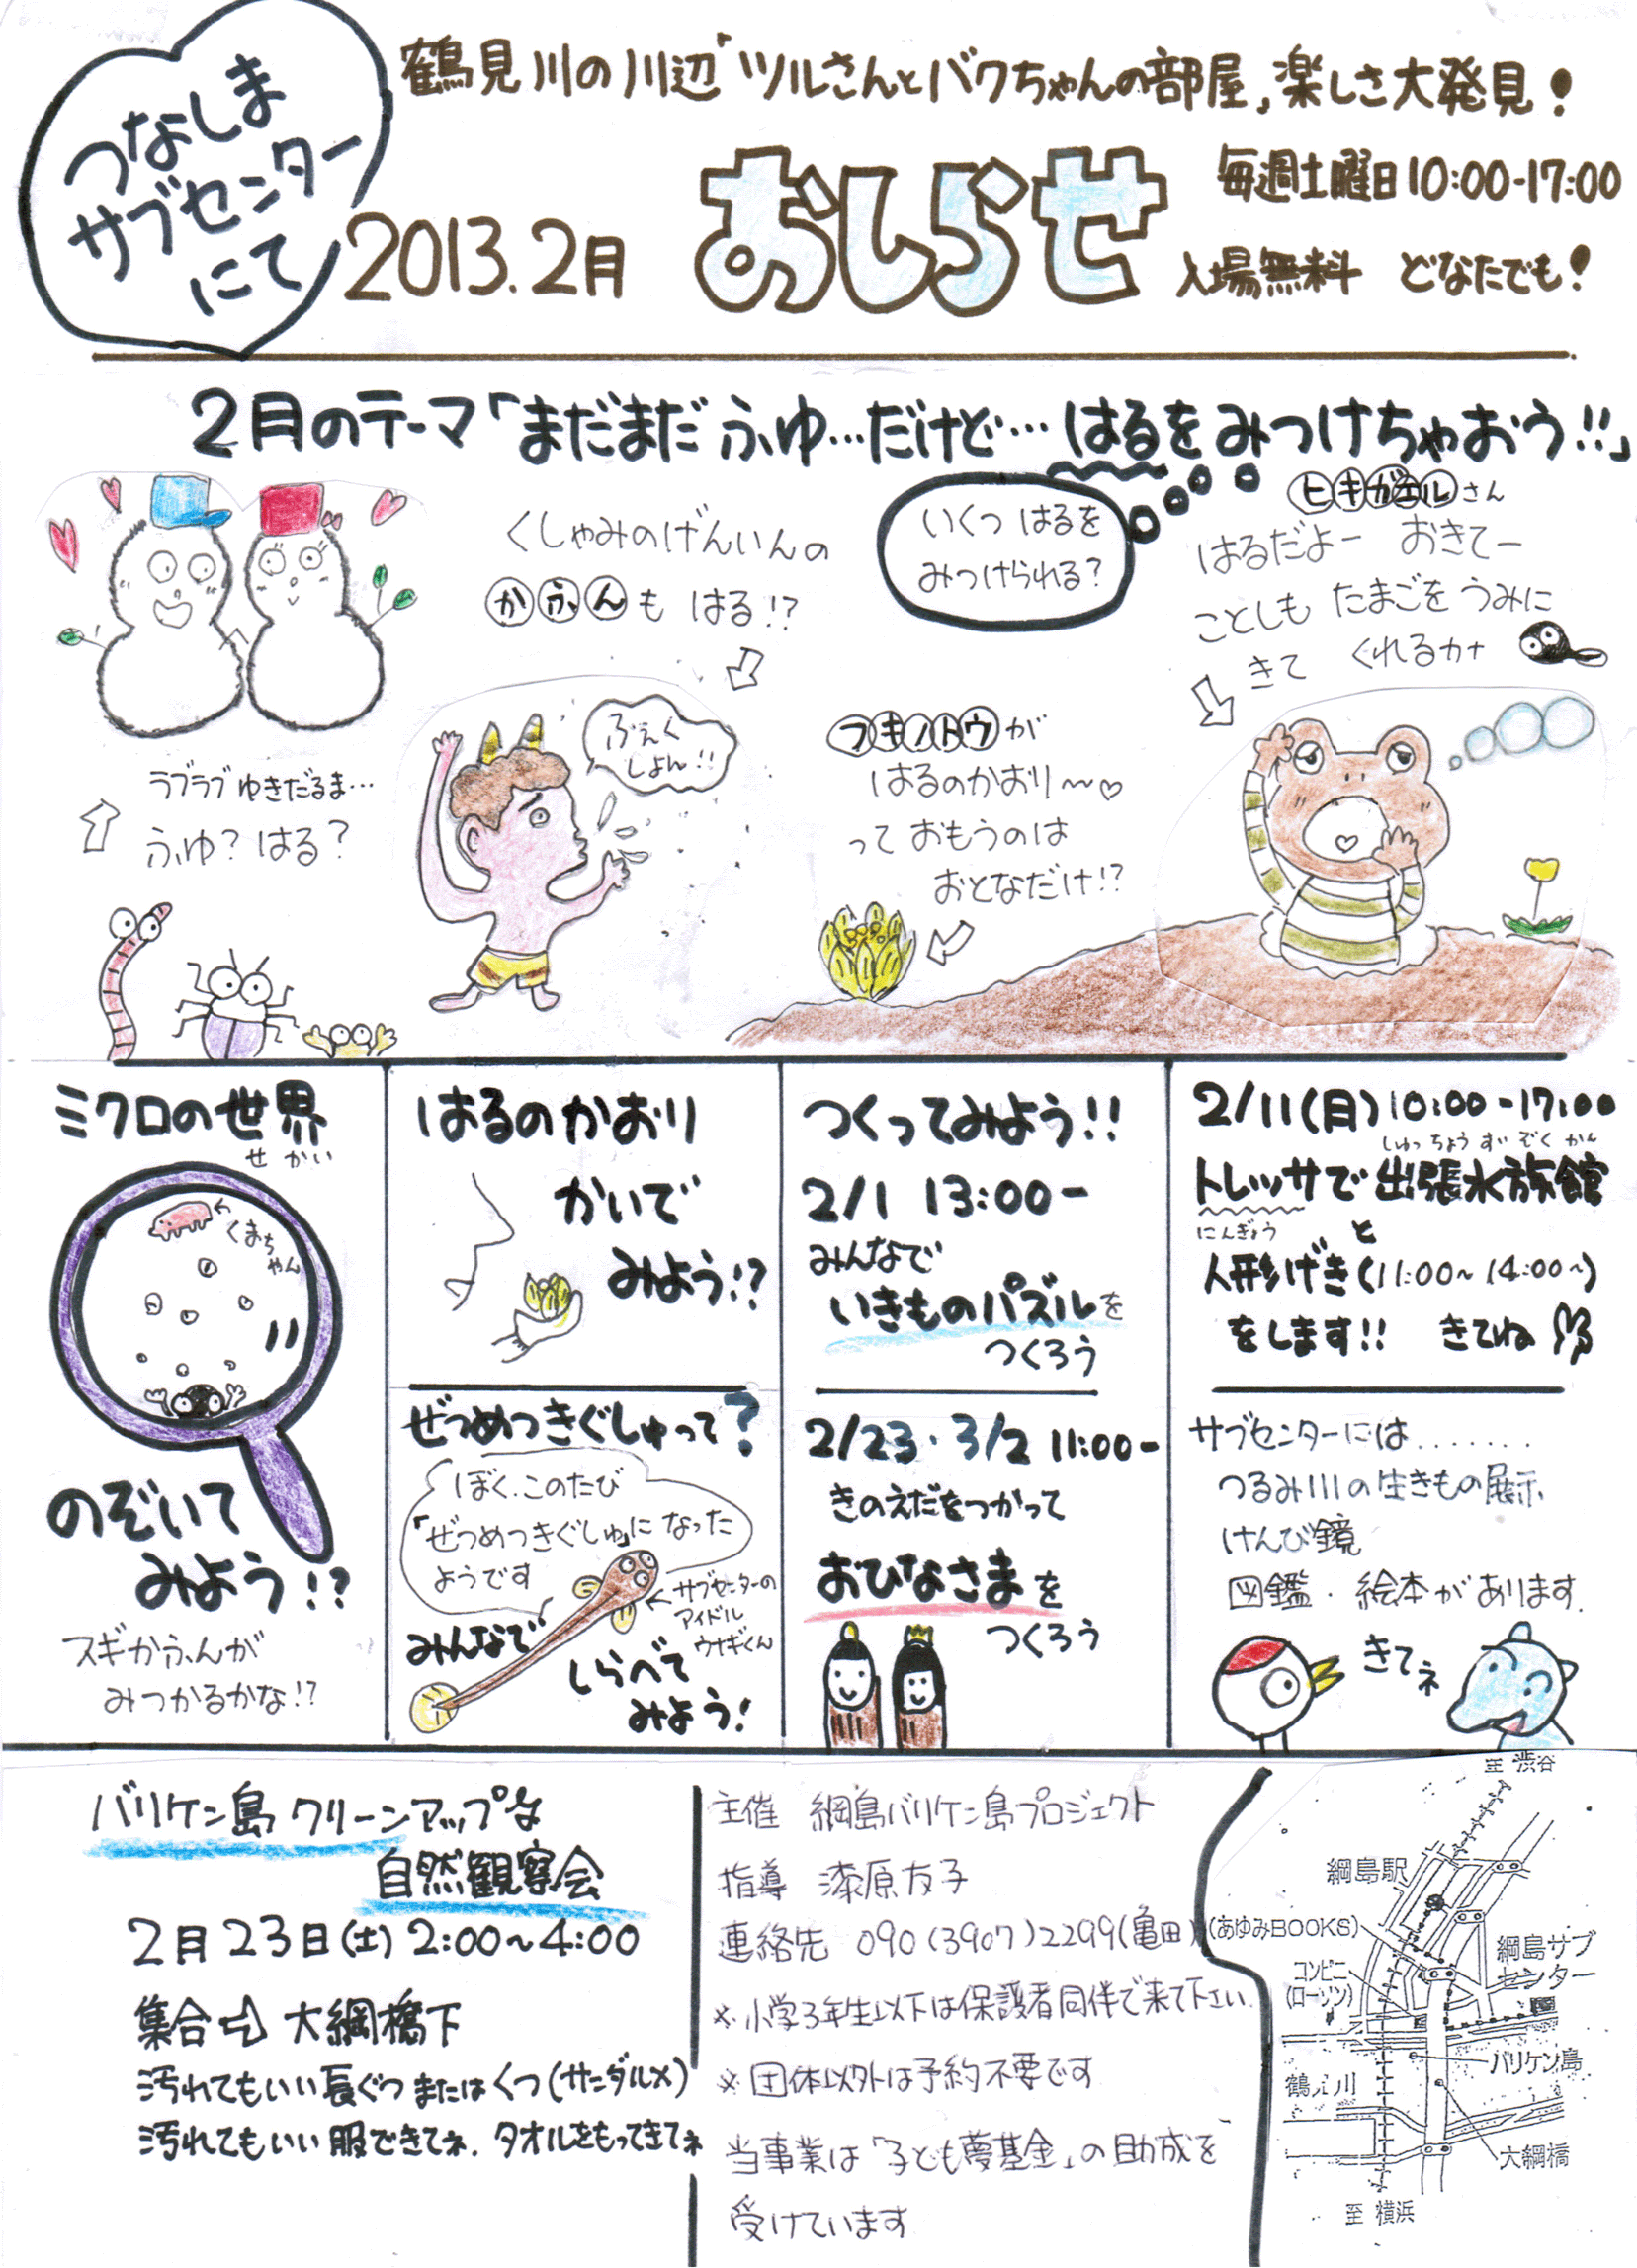 つなしま
サブセンター
にて
鶴見川の川辺「ツルさんとバクちゃんの部屋」楽しさ大発見!
2013.2月
おしらせ
毎週土曜日10:00-17:00
入場無料 どなたでも!
2月のテーマ「まだまだ ふゆ…だけど… はるを みつけちゃおう!!」
いくつ はるを
みつけられる?
くしゃみのげんいんの
かふんも はる!?
ヒキガエルさん
はるだよー おきてー
ことしも たまごを うみに
きて くれるカナ
ふぇっく
しょん!!
フキノトウが
はるのかおり〜♡
って おもうのは
おとなだけ!?
ラブラブ ゆきだるま…
ふゆ? はる?
ミクロの世界
せかい
くまちゃん
のぞいて
みよう!?
スギかふんが
みつかるかな!?
はるのかおり
かいで
みよう!?
ぜつめつきぐしゅって?
ぼく、このたび
「ぜつめつきぐしゅ」になった
ようです
サブセンターの
アイドル
ウナギくん
みんなで
しらべて
みよう!
つくってみよう!!
2/1 13:00-
みんなで
いきものパズルを
つくろう
2/23・3/2 11:00-
きのえだをつかって
おひなさまを
つくろう
2/11(日)10:00-17:00
しゅっちょうすいぞくかん
トレッサで出張水族館
にんぎょう と
人形げき(11:00〜 14:00〜)
をします!! きてね
サブセンターには........
つるみ川の生きもの展示
けんび鏡
図鑑・絵本があります.
きてネ
バリケン島 クリーンマップ&
自然観察会
2月23日(土)2:00〜4:00
集合⇨大綱橋下
汚れてもいい長ぐつまたはくつ(サンダル×)
汚れてもいい服できてネ. タオルをもってきてネ
主催 綱島バリケン島プロジェクト
指導 漆原友子
連絡先 090(3907)2299(亀田)
※小学3年生以下は保護者同伴で来て下さい.
※団体以外は予約不要です
当事業は「子ども夢基金」の助成を
受けています
至 渋谷
綱島駅
(あゆみBOOKS)
綱島サブ
センター
コンビニ
(ローソン)
バリケン島
鶴見川
大綱橋
至 横浜